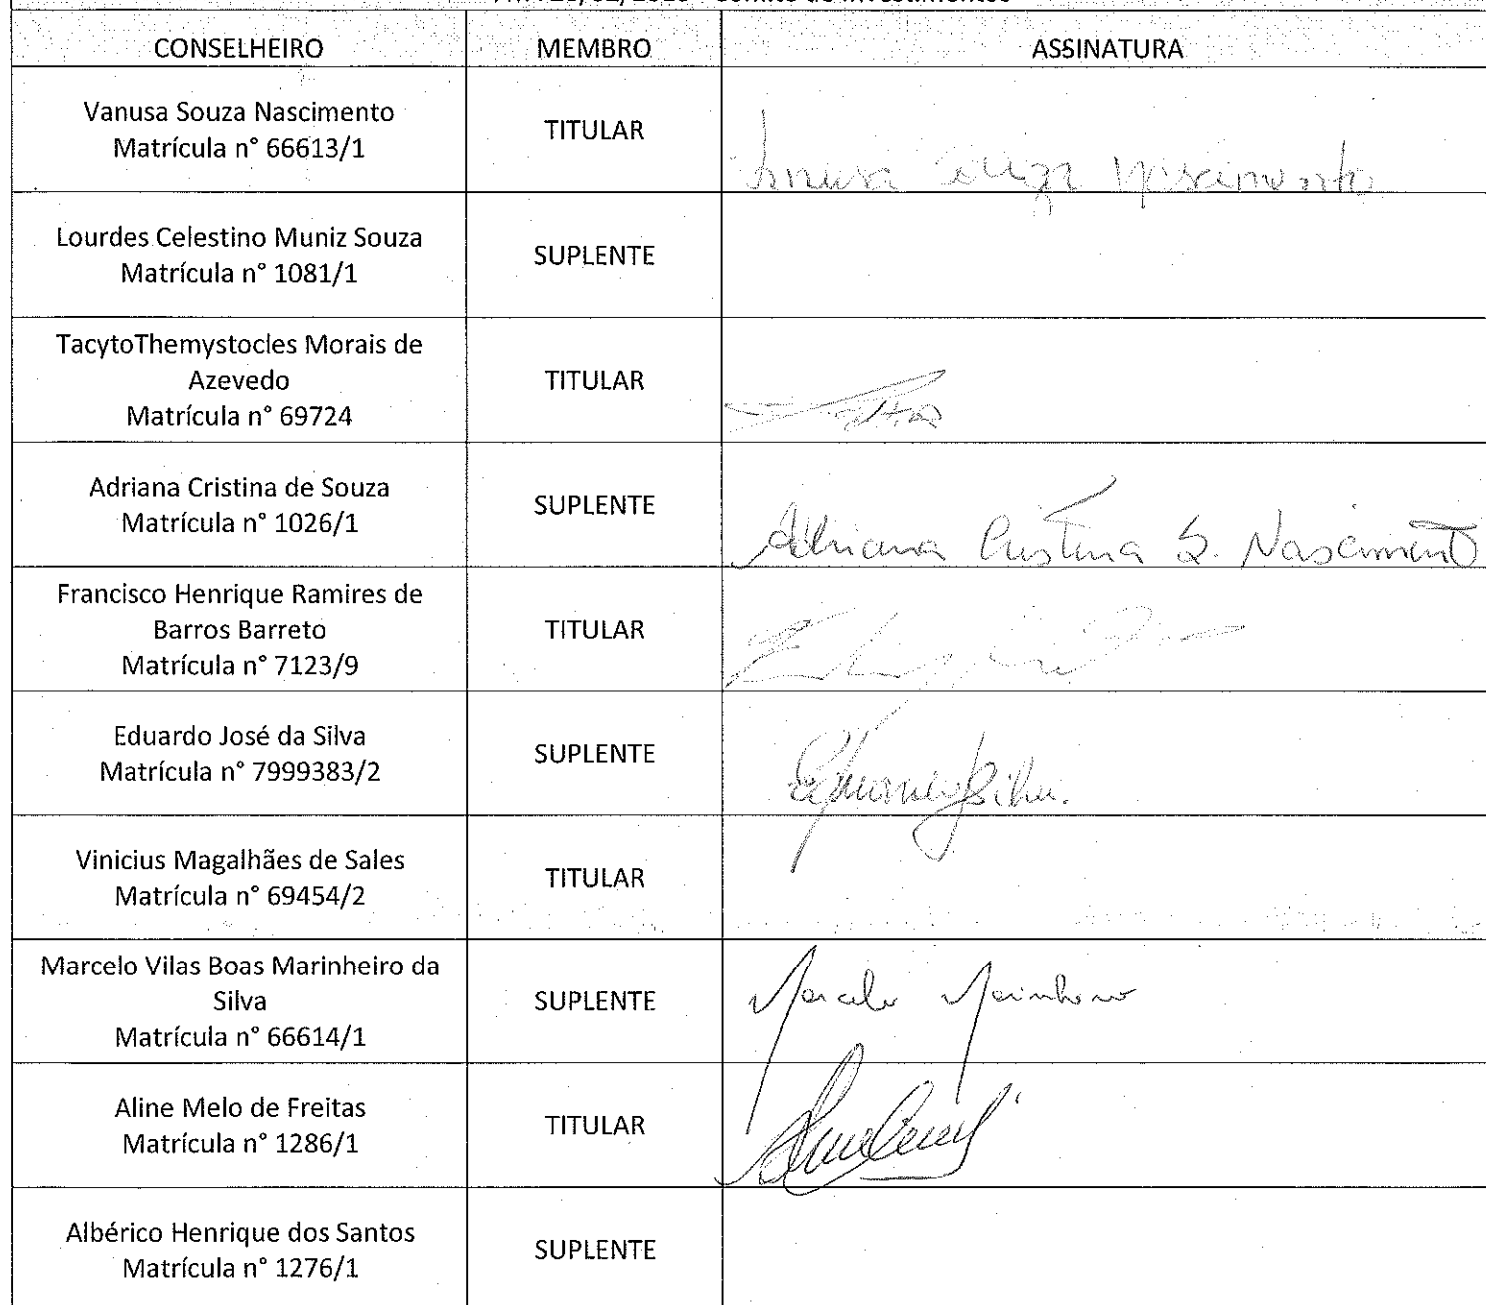 CONSELHEIRO MEMBRO ASSINATURA
Vanusa Souza Nascimento
Matrícula n° 66613/1
TITULAR
Souza Nascimento
Lourdes Celestino Muniz Souza
Matrícula n° 1081/1
SUPLENTE
TacytoThemystocles Morais de
Azevedo
Matrícula n° 69724
TITULAR
Adriana Cristina de Souza
Matrícula n° 1026/1
SUPLENTE
Adriana Cristina S. Nascimento
Francisco Henrique Ramires de
Barros Barreto
Matrícula n° 7123/9
TITULAR
Eduardo José da Silva
Matrícula n° 7999383/2
SUPLENTE
Vinicius Magalhães de Sales
Matrícula n° 69454/2
TITULAR
Marcelo Vilas Boas Marinheiro da
Silva
Matrícula n° 66614/1
SUPLENTE
Marcelo Marinheiro
Aline Melo de Freitas
Matrícula n° 1286/1
TITULAR
Albérico Henrique dos Santos
Matrícula n° 1276/1
SUPLENTE